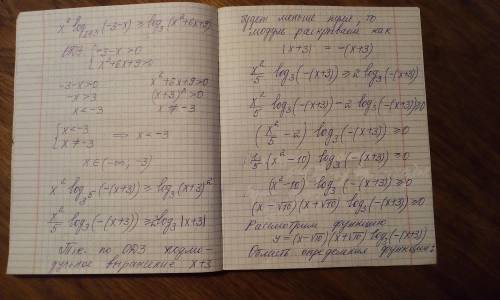 x² log₂₄₃(-3-x) ≥ log₃(x²+6x+9)
ОДЗ { -3-x>0
x²+6x+9>0
-3-x>0
-x>3
x<-3
x²+6x+9>0
(x+3)²>0
x≠-3
{ x<-3
x≠-3 ⟹ x<-3
x∈(-∞; -3)
x² log₃⁵(-(x+3)) ≥ log₃(x+3)²
x²/5 log₃(-(x+3)) ≥ 2log₃|x+3|
Т.к. по ОДЗ подмо-
дульное выражение x+3
будет меньше нуля, то
модуль раскрываем как
|x+3| = -(x+3)
x²/5 log₃(-(x+3)) ≥ 2 log₃(-(x+3))
x²/5 log₃(-(x+3)) - 2 log₃(-(x+3)) ≥ 0
(x²/5 - 2) log₃(-(x+3)) ≥ 0
1/5 (x²-10) log₃(-(x+3)) ≥ 0
(x²-10) log₃(-(x+3)) ≥ 0
(x-√10)(x+√10) log₃(-(x+3)) ≥ 0
Рассмотрим функцию
y=(x-√10)(x+√10) log₃(-(x+3))
Область определения функции: